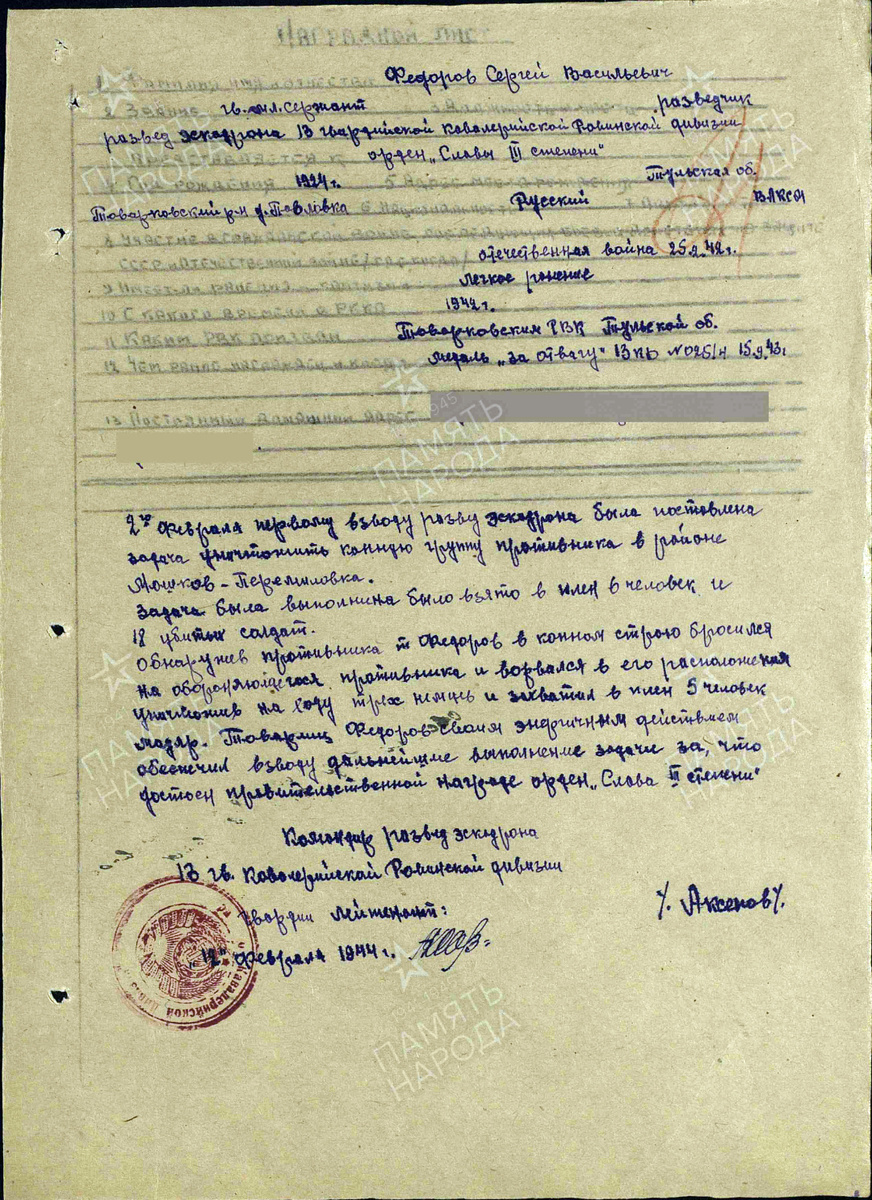 Наградной лист
1 Фамилия имя отчество Федоров Сергей Васильевич
2 Звание гв. мл. сержант разведчик
развед эскадрона 13 гвардийской Ковалерийской Ровинской дивизии
Представляется к орден „Славы III степени"
4 Год рождения 1924 г. 5 Адрес места рождения Тульская об.
Товарковский рн д. Павловка 6 Национальность Русский ВЛКСМ
8 Участие в гражданской войне
отечественная война 25.9.42 г.
легкое ранение
10 С какого времени в РККА 1942 г.
11 Каким РВК призван Товарковским РВК Тульской об.
12 Чем ранее награжден медаль „за отвагу" 13 КД № 025/н 15.9.43 г
13 Постоянный домашний адрес
2го Февраля первому взводу развед эскадрона была поставлена
задача уничтожить конную группу противника в районе
Мошков-Перемиловка.
Задача была выполнина было взято в плен 6 человек и
18 убитых солдат.
Обнаружев противника т Федоров в конном строю бросился
на обороняющегося противника и ворвался в его расположения
уничтожив на ходу трех немцев и захватил в плен 5 человек
мадяр. Товарищ Федоров своим энергичным действием
обеспечил взводу дальнейшие выполнение задаче за, что
достоен правительственной награде орден „Слава III степени"
Командир развед эскадрона
13 гв. Ковалерийской Ровинской дивизии
Гвардии лейтенант: /. Аксенов /.
„12" Февраля 1944 г.
Кавалерийской
ПАМЯТЬ НАРОДА